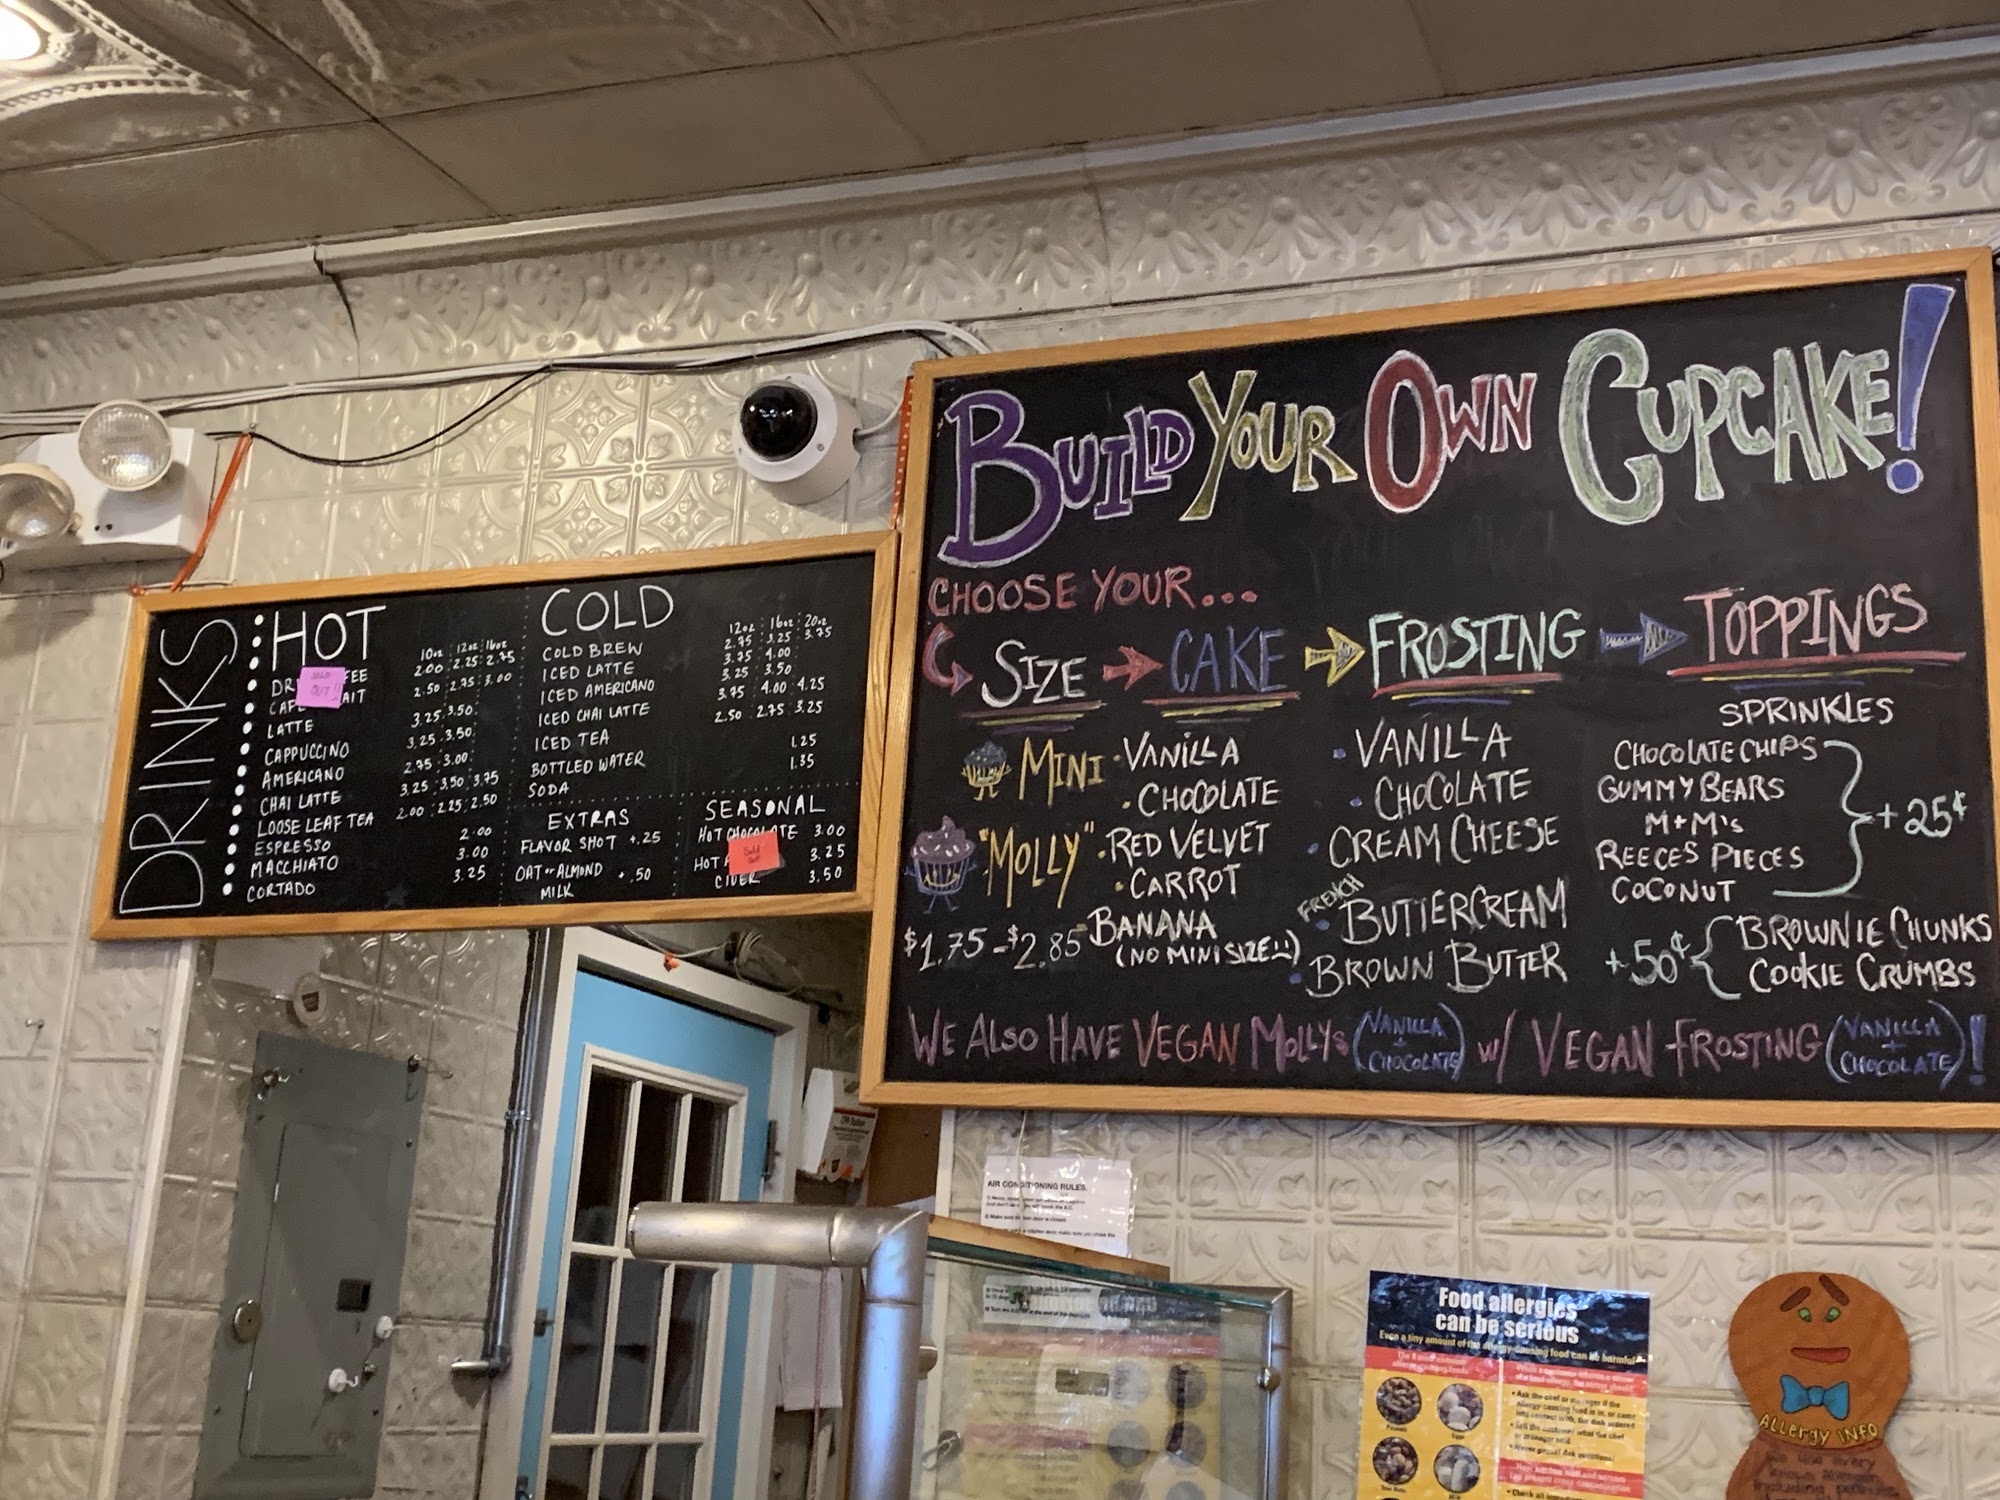 DRINKS
HOT
10oz 12oz 16oz
2.00 2.25 2.75
SOLD OUT!!
2.50 2.75 3.00
LATTE 3.25 3.50
CAPPUCCINO 3.25 3.50
AMERICANO 2.75 3.00
CHAI LATTE 3.25 3.50 3.75
LOOSE LEAF TEA 2.00 2.25 2.50
ESPRESSO 2.00
MACCHIATO 3.00
CORTADO 3.25
COLD
12oz 16oz 20oz
COLD BREW 2.75 3.25 3.75
ICED LATTE 3.75 4.00
ICED AMERICANO 3.25 3.50
ICED CHAI LATTE 3.75 4.00 4.25
ICED TEA 2.50 2.75 3.25
BOTTLED WATER 1.25
SODA 1.35
EXTRAS
FLAVOR SHOT +.25
OAT or ALMOND
MILK +.50
SEASONAL
HOT CHOCOLATE 3.00
HOT 3.25
Sold out
CIDER 3.50
BUILD YOUR OWN CUPCAKE!
CHOOSE YOUR...
SIZE
MINI
"MOLLY"
$1.75 - $2.85
CAKE
VANILLA
CHOCOLATE
RED VELVET
CARROT
BANANA
(NO MINI SIZE :-))
FROSTING
VANILLA
CHOCOLATE
CREAM CHEESE
FRENCH
BUTTERCREAM
BROWN BUTTER
TOPPINGS
SPRINKLES
CHOCOLATE CHIPS
GUMMY BEARS
M+M's
REECES PIECES
COCONUT
+25¢
+.50¢
BROWNIE CHUNKS
COOKIE CRUMBS
WE ALSO HAVE VEGAN MOLLYS (VANILLA + CHOCOLATE) w/ VEGAN FROSTING (VANILLA + CHOCOLATE)!
AIR CONDITIONING RULES.
Food allergies
can be serious
Even a tiny amount of the allergy-causing food can be harmful
ALLERGY INFO